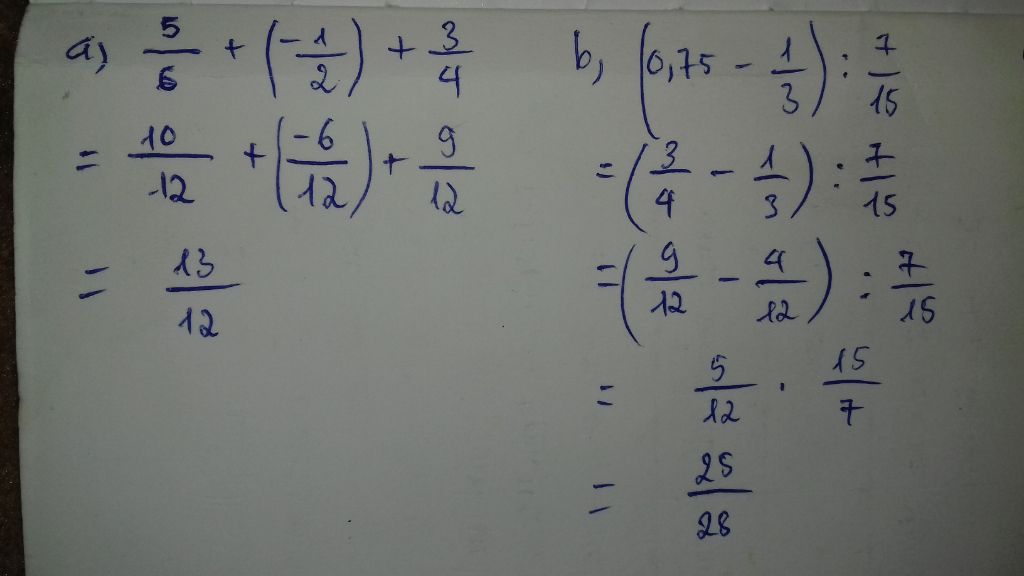 a) 5/6 + (-1/2) + 3/4
= 10/12 + (-6/12) + 9/12
= 13/12
b, (0,75 - 1/3) : 7/15
= (3/4 - 1/3) : 7/15
= (9/12 - 4/12) : 7/15
= 5/12 . 15/7
= 25/28